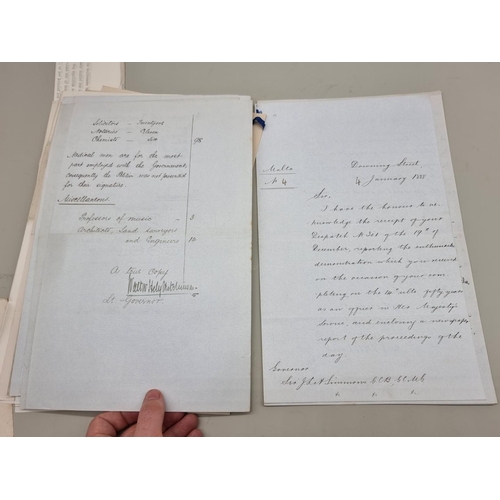 Solicitors - Twentyfour
Notaries - Eleven
Chemists - Six
Medical men are for the most
part employed with the Government,
consequently the Petition was not presented
for their signature.
Miscellaneous
Professors of music - 3
Architects, Land surveyors
and Engineers 10
A true Copy
Walter Hely Hutchinson
Lt Governor
Malta
No 4
Downing Street
4 January 1888
Sir,
I have the honour to ac-
knowledge the receipt of your
Despatch No 301 of the 19th of
December, reporting the enthusiastic
demonstration which you received
on the occasion of your com-
pleting on the 14th ulto fifty years
as an officer in Her Majesty's
Service, and enclosing a newspaper
report of the proceedings of the
day
Governor
Sir J. L. A. Simmons G.C.B. G.C.M.G.